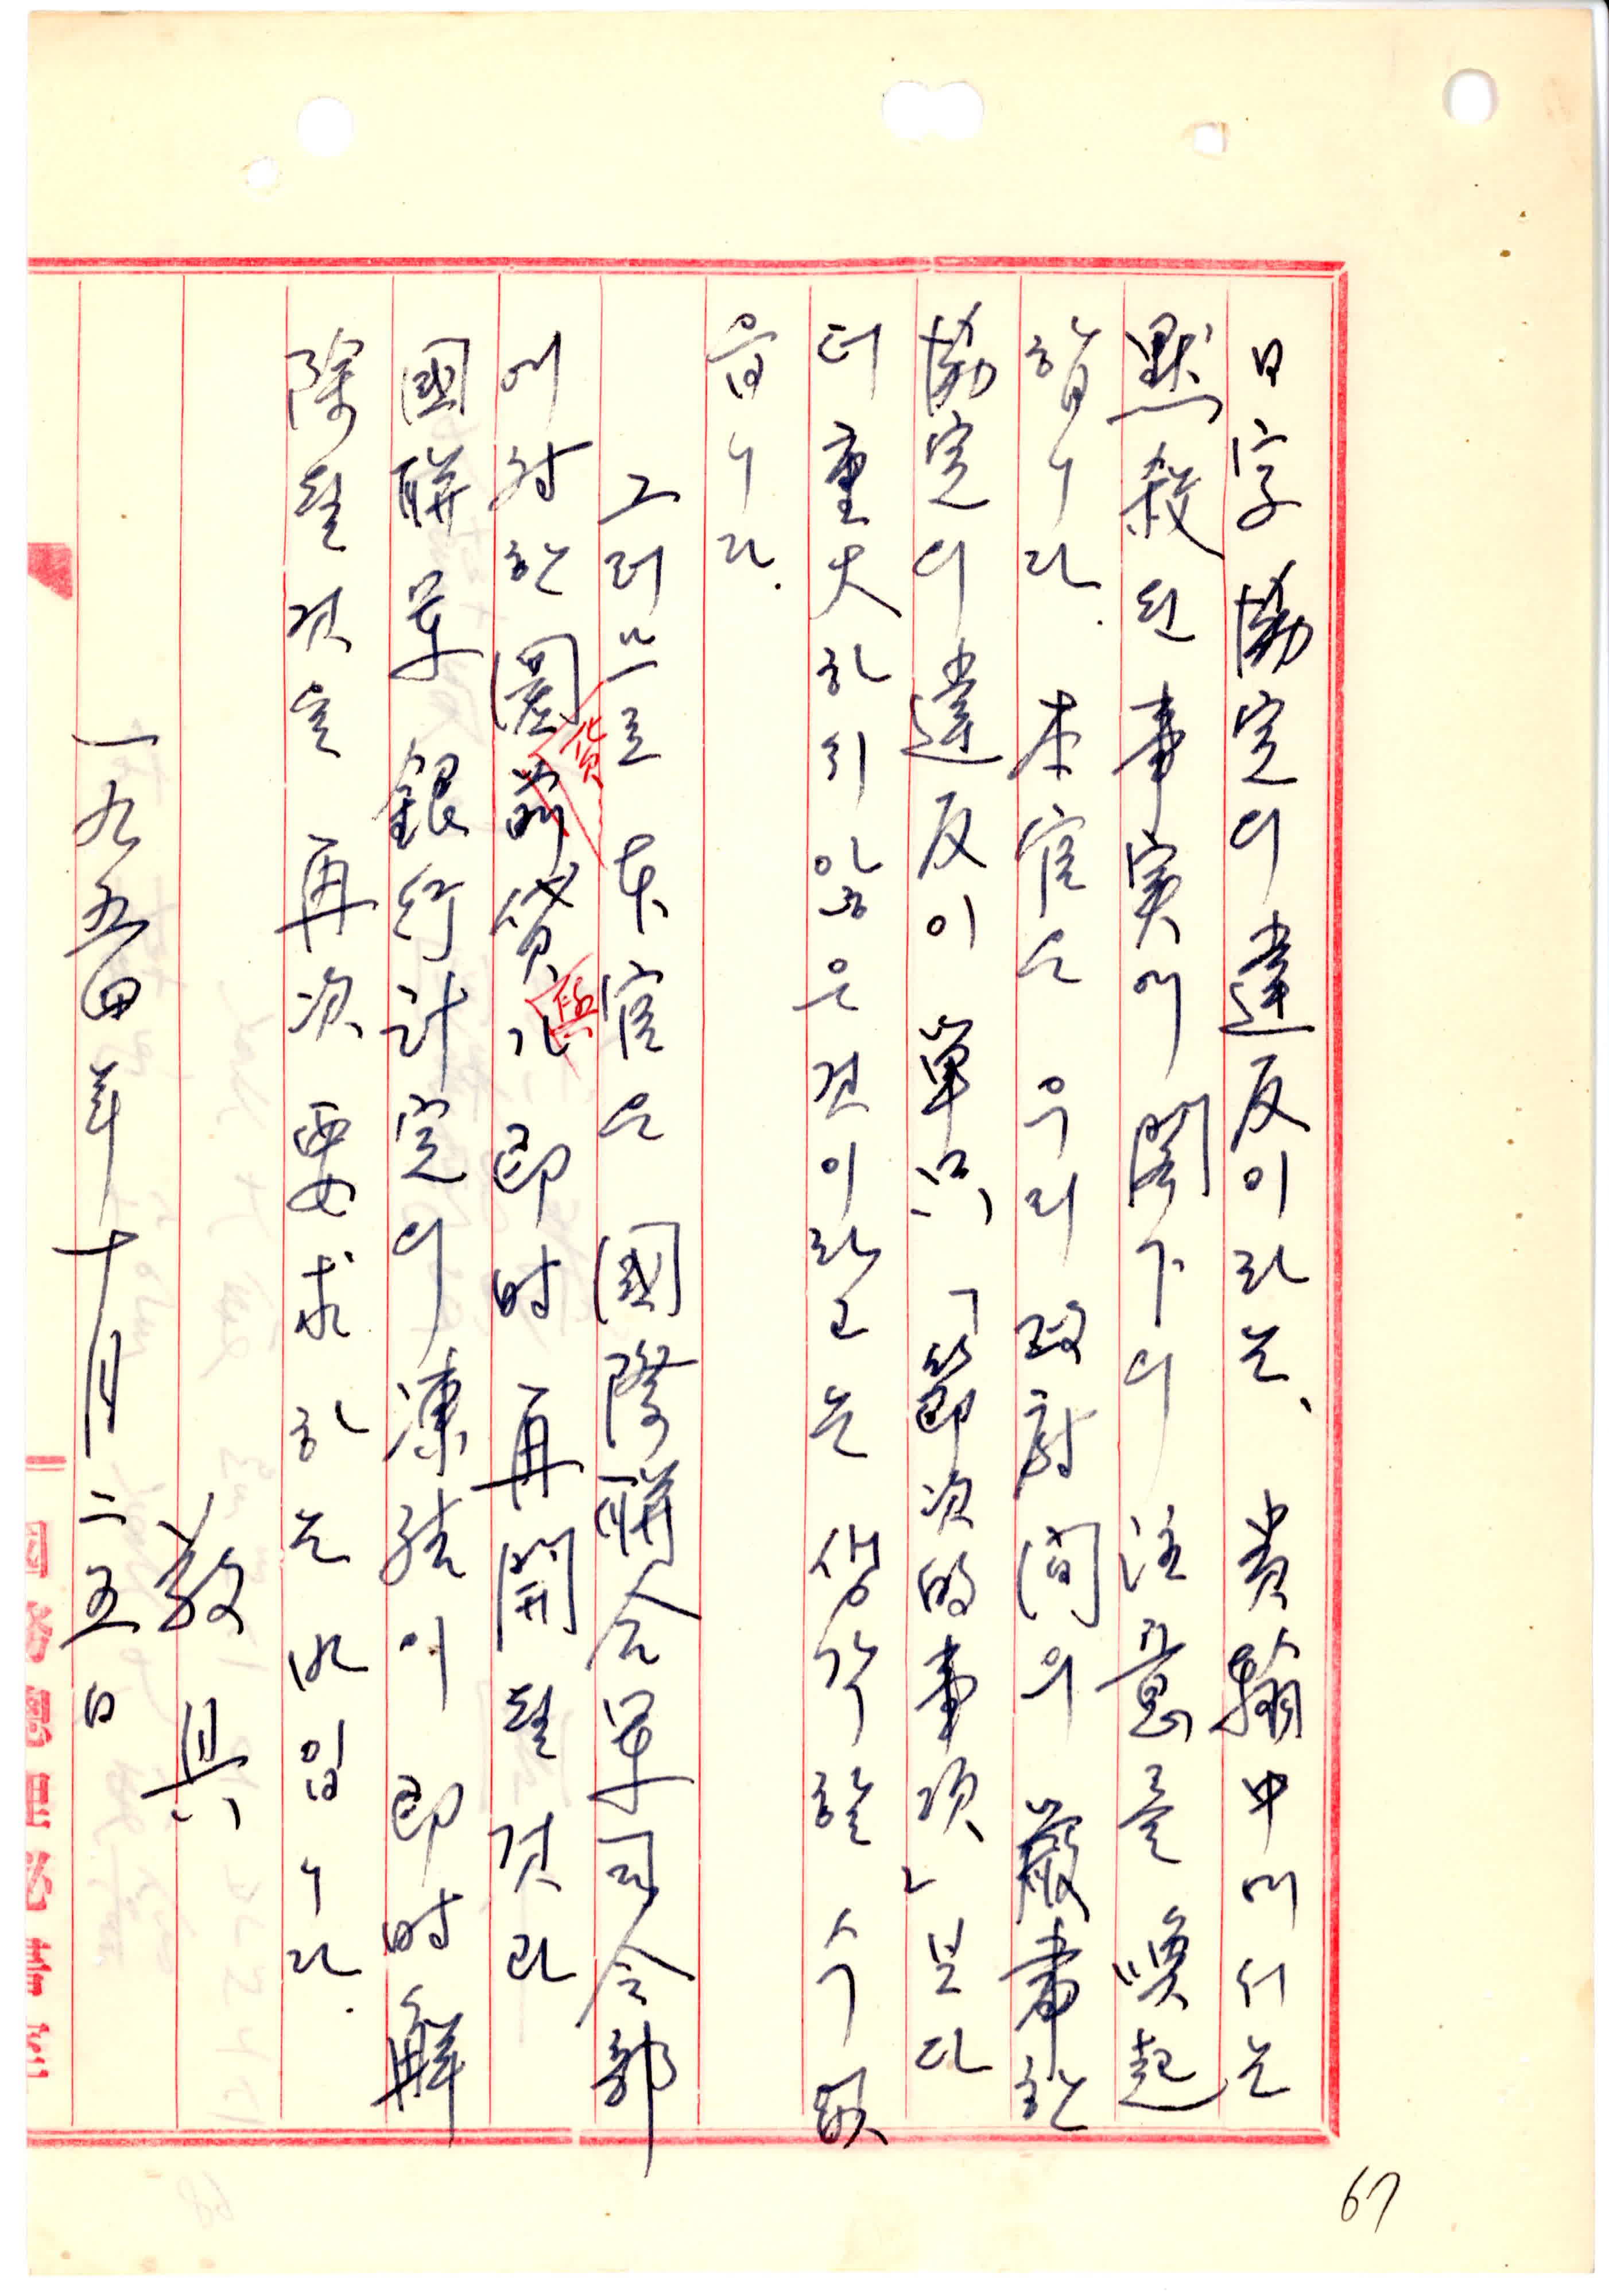 日字 協定의 違反이라는、 貴翰中에서는
黙殺된 事実에 閣下의 注意를 喚起
합니다. 本官은 우리 政府間의 嚴肅한
協定의 違反이 単只 「節次的事項」보다
더 重大하지 않은 것이라고는 생각할 수 없
읍니다.
그러므로 本官은 國際聯合軍司令部
에 対한 圜貨 貸與가 即時 再開될 것과
國聯軍 銀行計定의 凍結이 即時 解
除될 것을 再次 要求하는 바입니다.
敬具
一九五四年十月二五日
67